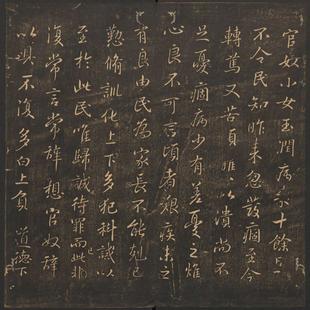 官奴小女玉潤病來十餘日了
不令民知昨來忽發痼至今
轉篤又苦頭癰以潰尚不
足憂痼病少有差憂之燋
心良不可言頃者艱疾未之
有良由民為家長不能剋己
懃脩訓化上下多犯科誡以
至於此民唯歸誠待罪而已此非
復常言常辭想官奴辭
以具不復多白上負道德下